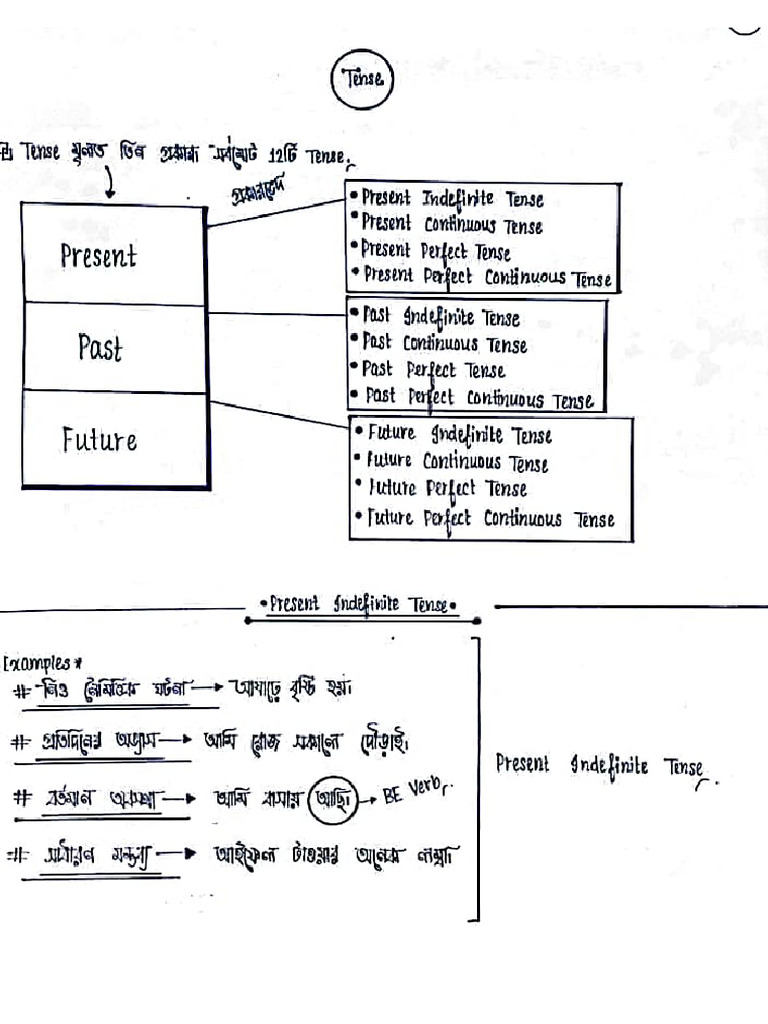 Tense
Tense মূলত তিন প্রকার সর্বমোট 12টি Tense.
প্রকারভেদ
Present
• Present Indefinite Tense
• Present Continuous Tense
• Present Perfect Tense
• Present Perfect Continuous Tense
Past
• Past Indefinite Tense
• Past Continuous Tense
• Past Perfect Tense
• Past Perfect Continuous Tense
Future
• Future Indefinite Tense
• Future Continuous Tense
• Future Perfect Tense
• Future Perfect Continuous Tense
• Present Indefinite Tense •
Examples*
# নিত্য নৈমিত্তিক ঘটনা → আষাঢ়ে বৃষ্টি হয়।
# প্রতিদিনের অভ্যাস → আমি রোজ সকালে দৌড়াই।
# বর্তমান অবস্থা → আমি বাসায় আছি। → BE Verb.
# সাধারন মন্তব্য → আইফেল টাওয়ার অনেক লম্বা।
Present Indefinite Tense.